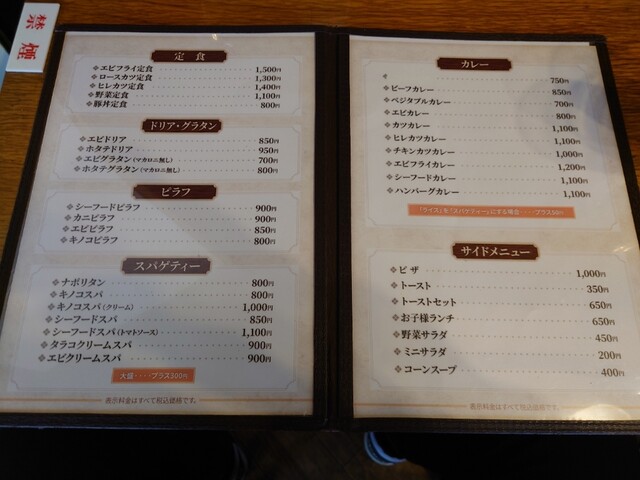 禁煙
定食
エビフライ定食 1,500円
ロースカツ定食 1,300円
ヒレカツ定食 1,400円
野菜定食 1,100円
豚丼定食 800円
ドリア・グラタン
エビドリア 850円
ホタテドリア 950円
エビグラタン(マカロニ無し) 700円
ホタテグラタン(マカロニ無し) 800円
ピラフ
シーフードピラフ 900円
カニピラフ 900円
エビピラフ 850円
キノコピラフ 800円
スパゲティー
ナポリタン 800円
キノコスパ 800円
キノコスパ(クリーム) 1,000円
シーフードスパ 850円
シーフードスパ(トマトソース) 1,100円
タラコクリームスパ 900円
エビクリームスパ 900円
大盛・・・・プラス300円
表示料金はすべて税込価格です。
カレー
750円
ビーフカレー 850円
ベジタブルカレー 700円
エビカレー 800円
カツカレー 1,100円
ヒレカツカレー 1,100円
チキンカツカレー 1,000円
エビフライカレー 1,200円
シーフードカレー 1,100円
ハンバーグカレー 1,100円
「ライス」を「スパゲティー」にする場合・・・プラス50円
サイドメニュー
ピザ 1,000円
トースト 350円
トーストセット 650円
お子様ランチ 650円
野菜サラダ 450円
ミニサラダ 200円
コーンスープ 400円
表示料金はすべて税込価格です。